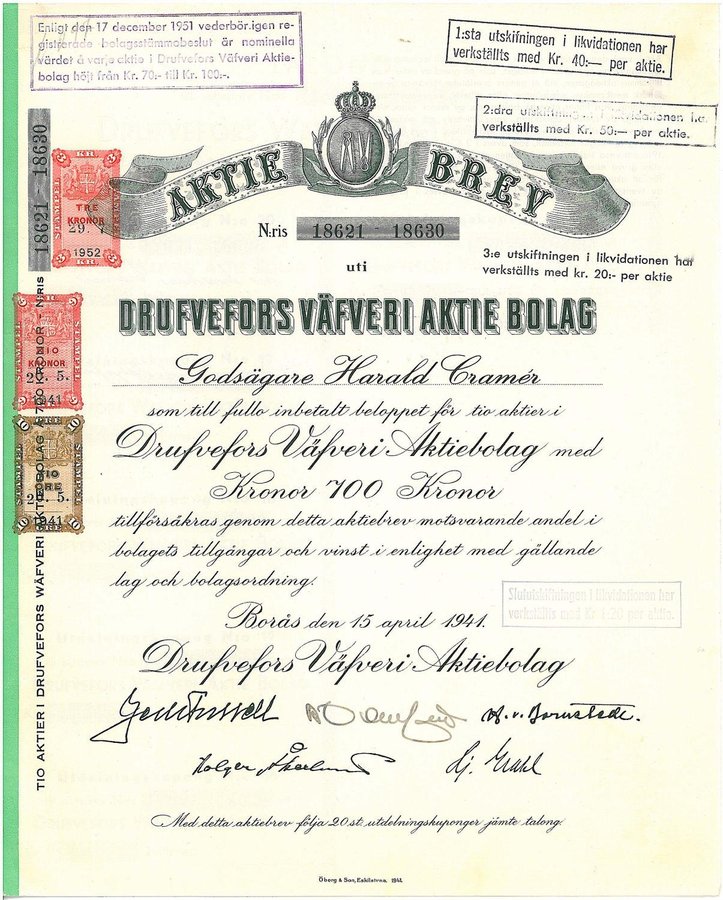 Enligt den 17 december 1951 vederbör.igen re-
gistrerade bolagsstämmobeslut är nominella
värdet å varje aktie i Drufvefors Väfveri Aktie-
bolag höjt från Kr. 70:- till Kr. 100:-.
1:sta utskifningen i likvidationen har
verkställts med Kr. 40:— per aktie.
2:dra utskiftningen i likvidationen ha.
verkställts med Kr. 50:— per aktie.
AKTIE BREV
N:ris 18621 - 18630
3:e utskiftningen i likvidationen har
verkställts med kr. 20:- per aktie
uti
DRUFVEFORS VÄFVERI AKTIE BOLAG
Godsägare Harald Cramér
som till fullo inbetalt beloppet för tio aktier i
Drufvefors Väfveri Aktiebolag med
Kronor 700 Kronor
tillförsäkras genom detta aktiebrev motsvarande andel i
bolagets tillgångar och vinst i enlighet med gällande
lag och bolagsordning.
Slututskiftningen i likvidationen har
verkställts med Kr 1:20 per aktie.
Borås den 15 april 1941.
Drufvefors Väfveri Aktiebolag
Holger Åkerlund
Med detta aktiebrev följa 20 st. utdelningskuponger jämte talong.
Öberg & Son, Eskilstuna, 1941.
TIO AKTIER I DRUFVEFORS WÄFVERI AKTIEBOLAG Å 700 KRONOR - N:RIS 18621 - 18630
3 KR 3
STÄMPEL
TRE
KRONOR
29. 7
1952
3 KR. 3
STÄMPEL
TIO
KRONOR
5.
1941
10 ÖRE 10
STÄMPEL
TIO
ÖRE
5.
1941
10 ÖRE 10